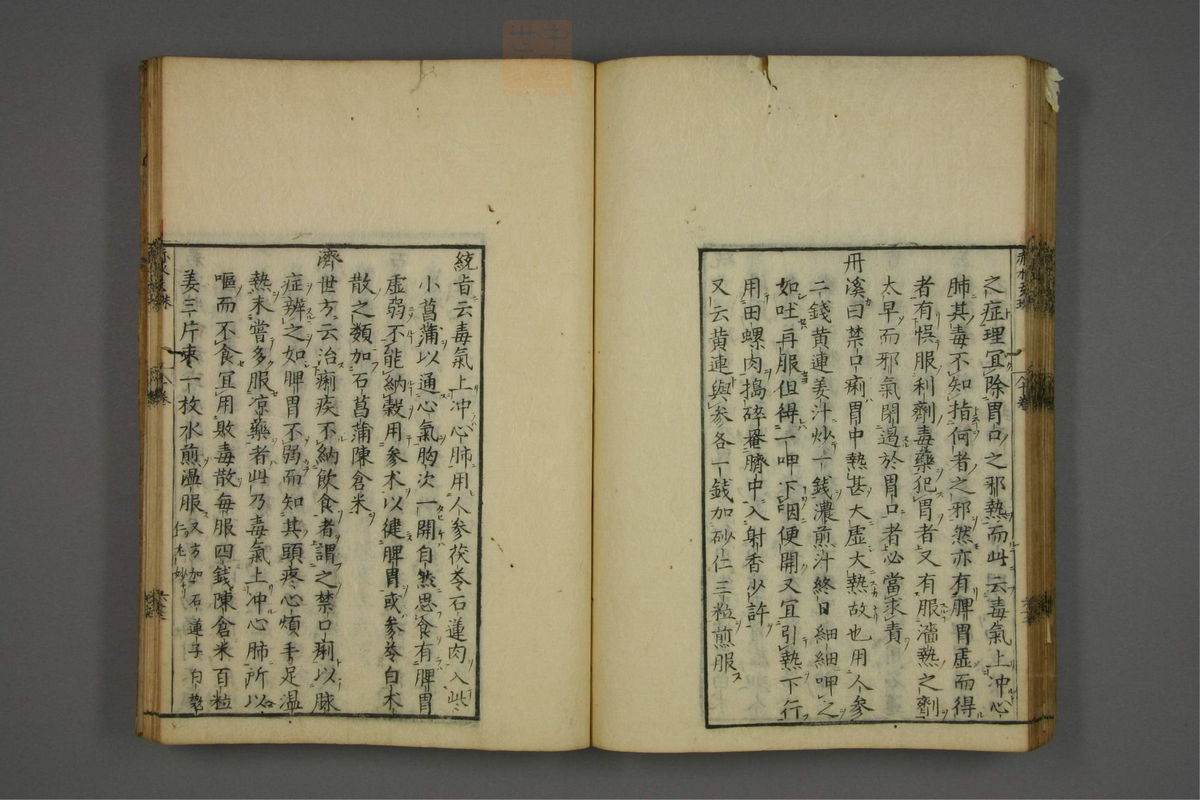 之症理宜除胃口之邪熱而此云毒氣上冲心
肺其毒不知指何者之邪然亦有脾胃虛而得
者有悞服利劑毒藥犯胃者又有服濇熱之劑
太早而邪氣閉遏於胃口者必當求責
丹溪曰禁口痢胃中熱甚大虛大熱故也用人參
二錢黃連姜汁炒一錢濃煎汁終日細細呷之
如吐再服但得一呷下咽便開又宜引熱下行
用田螺肉搗碎罨臍中入射香少許
又云黃連與參各一錢加砂仁三粒煎服
統旨云毒氣上冲心肺用人參茯苓石蓮肉入些
小菖蒲以通心氣胸次一開自然思食有脾胃
虛弱不能納穀用參术以健脾胃或參苓白术
散之類加石菖蒲陳倉米
濟世方云治痢疾不納飲食者謂之禁口痢以脉
症辨之如脾胃不弱而知其頭疼心煩手足溫
熱未嘗多服凉藥者此乃毒氣上冲心肺所以
嘔而不食宜用敗毒散每服四錢陳倉米百粒
姜三片棗一枚水煎溫服又方加石蓮子白
仁尤妙